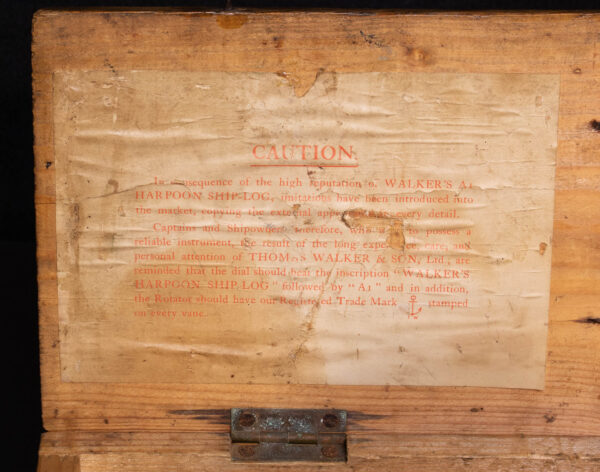 CAUTION
In consequence of the high reputation of WALKER'S A1
HARPOON SHIP-LOG, imitations have been introduced into
the market, copying the external in every detail.
Captains and Shipowners, therefore, who to possess a
reliable instrument, the result of the long experience, care, and
personal attention of THOMAS WALKER & SON, Ltd., are
reminded that the dial should bear the inscription "WALKER'S
HARPOON SHIP LOG" followed by "A1" and in addition,
the Rotator should have our Registered Trade Mark stamped
on every vane.